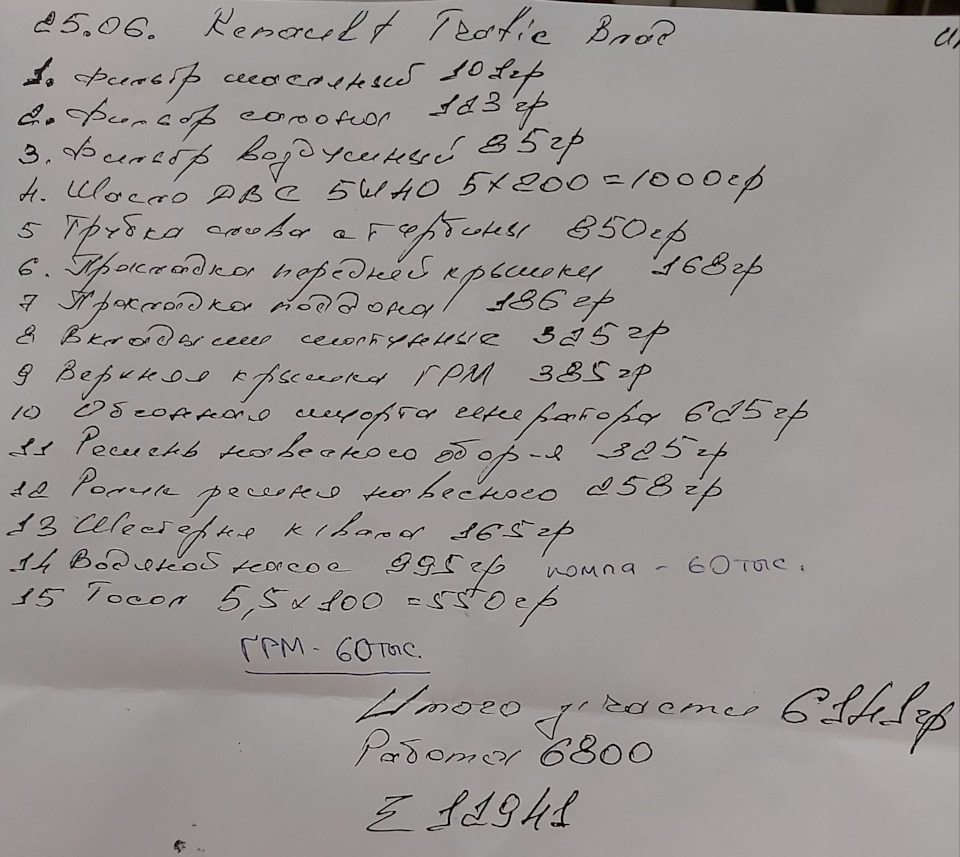 25.06. Renault Trafic Влад
1. Фильтр масляный 101гр
2. Фильтр салона 123гр
3. Фильтр воздушный 85гр
4. Масло ДВС 5W40 5x200=1000гр
5 Трубка слива с турбины 850гр
6. Прокладка передней крышки 168гр
7 Прокладка поддона 186гр
8 Вкладыши шатунные 325гр
9 Верхняя крышка ГРМ 385гр
10 Обгонная муфта генератора 625гр
11 Ремень навесного обор-я 325гр
12 Ролик ремня навесного 258гр
13 Шестерня к/вала 165гр
14 Водяной насос 995гр помпа - 60тыс.
15 Тосол 5,5x100=550гр
ГРМ - 60тыс.
Итого з/части 6141гр
Работа 6800
Σ 12941